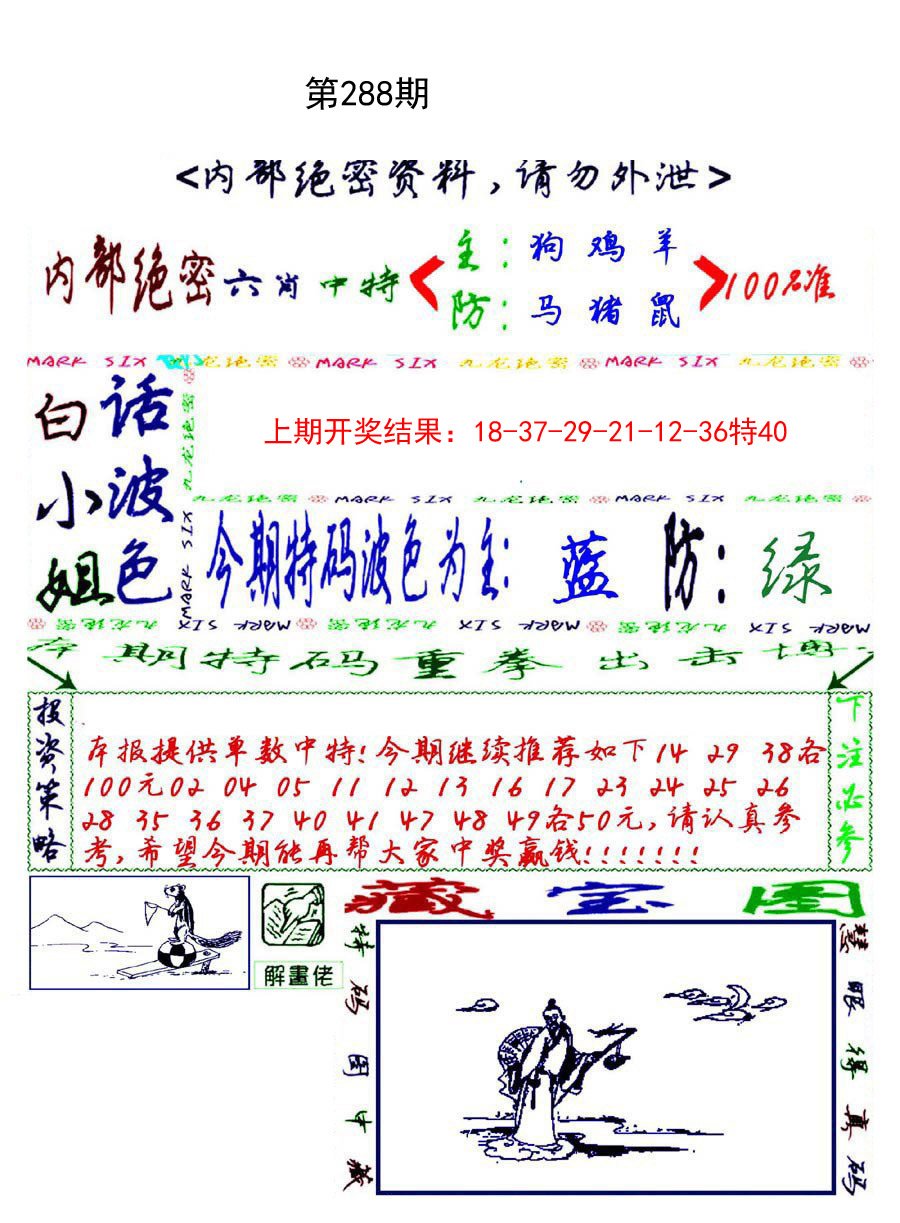 第288期
<内部绝密资料,请勿外泄>
内部绝密六肖中特
主:狗鸡羊
防:马猪鼠
100%准
MARK SIX 九龙绝密 MARK SIX 九龙绝密 MARK SIX 九龙绝密
白小姐
话波色
九龙绝密 MARK SIX
上期开奖结果：18-37-29-21-12-36特40
九龙绝密 MARK SIX 九龙绝密 MARK SIX 九龙绝密
今期特码波色为主:蓝 防:绿
九龙绝密 MARK SIX 九龙绝密 MARK SIX 九龙绝密 MARK SIX
本期特码重拳出击博
投资策略
本报提供单数中特!今期继续推荐如下14 29 38各
100元02 04 05 11 12 13 16 17 23 24 25 26
28 35 36 37 40 41 47 48 49各50元,请认真参
考,希望今期能再帮大家中奖赢钱!!!!!!!
下注必参
解畫佬
藏宝图
特码图中藏
慧眼得真码